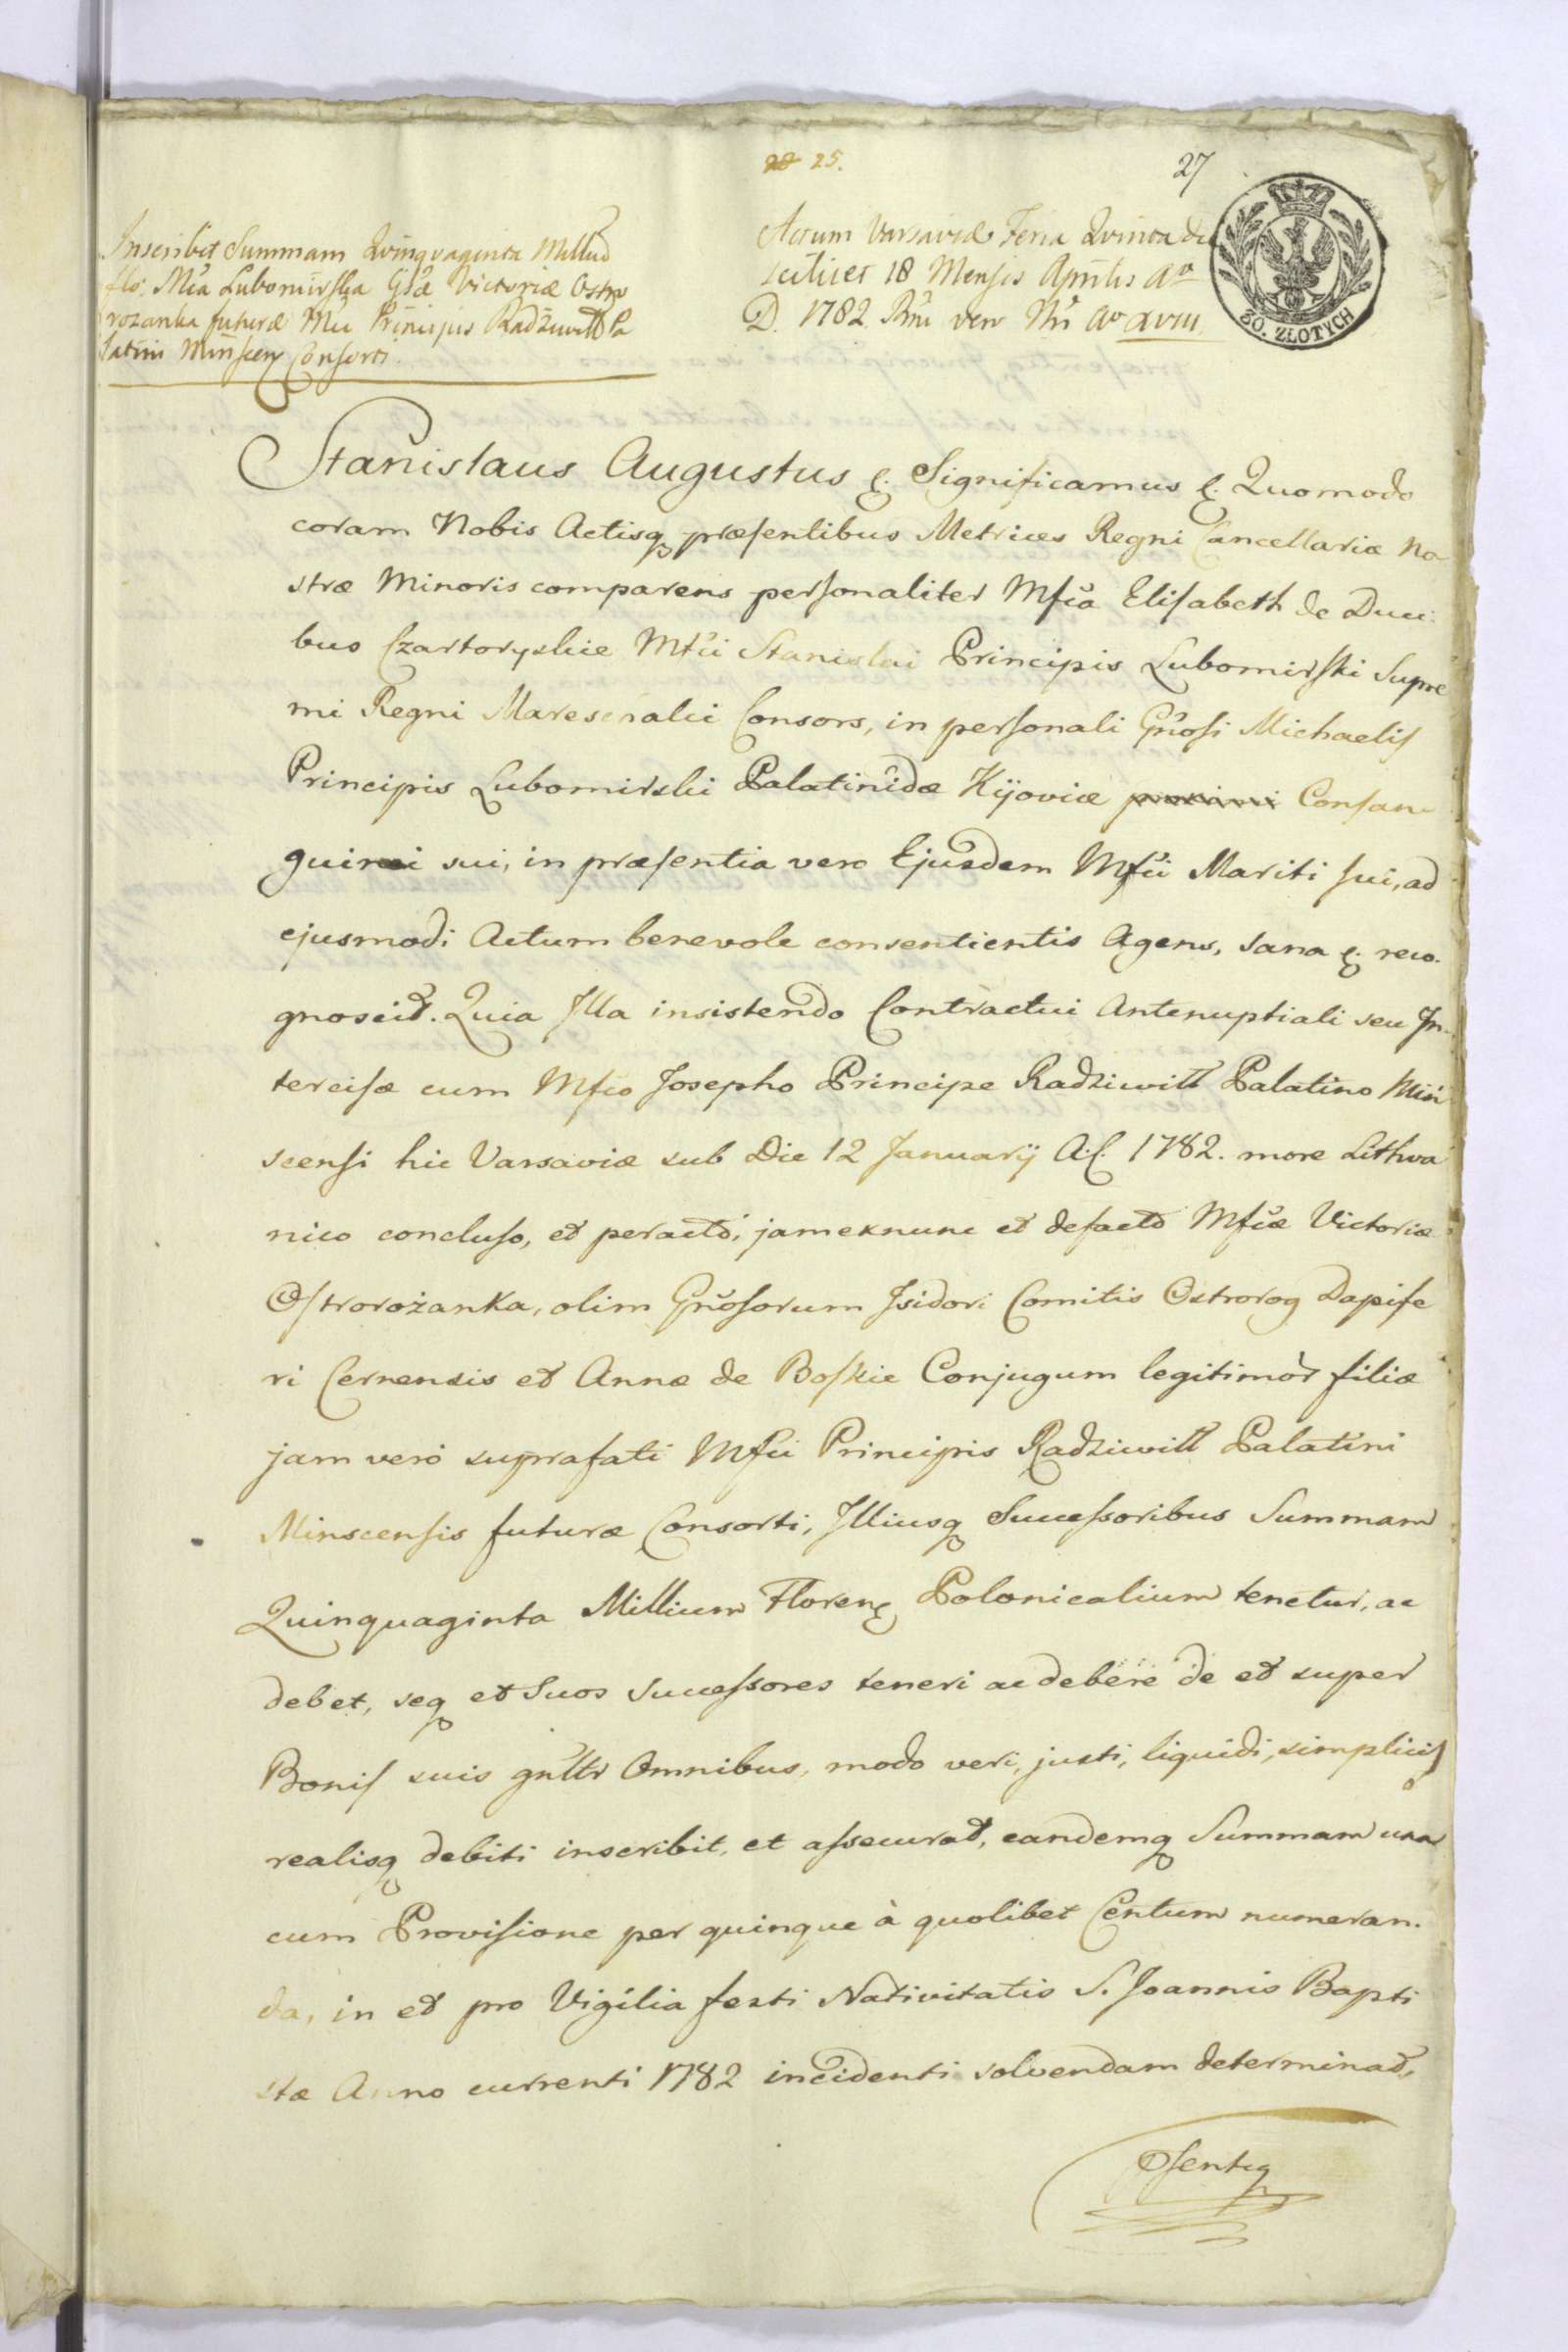 25.
27
Inscribit Summam Quinquaginta Mille
flo: Mca Lubomirska Gsæ Victoriæ Ostro
rożanka futuræ Mci Principis Radziwiłł Pa
latini Minscen Consorti.
Actum Varsaviæ Feria Quinta die
scilicet 18 Mensis Aprilis Ao
D. 1782 Rni vero Nri Ao XVIII
30. ZŁOTYCH
Stanislaus Augustus &. Significamus &. Quomodo
coram Nobis Actisq præsentibus Metrices Regni Cancellariæ No
stræ Minoris comparens personaliter Mfca Elisabeth de Duci
bus Czartoryskie Mfci Stanislai Principis Lubomirski Supre
mi Regni Mareschalci Consors, in personali Gnosi Michaelis
Principis Lubomirski Palatinidæ Kijoviæ Consan
guinei sui, in præsentia vero Ejusdem Mfci Mariti sui, ad
ejusmodi Actum benevole consentientis Agens, sana &. reco.
gnoscit. Quia Illa insistendo Contractui Antenuptiali seu In
tercisæ cum Mfco Josepho Principe Radziwiłł Palatino Min
scensi hic Varsaviæ sub Die 12 Januarij A.C. 1782. more Lithva
nico concluso, et peracto, jam exnunc et defacto Mfcæ Victoriæ
Ostrorożanka, olim Gnosorum Isidori Comitis Ostrorog Dapife
ri Cernensis et Annæ de Boskie Conjugum legitimor filiæ
jam vero suprafati Mfci Principis Radziwiłł Palatini
Minscensis futuræ Consorti, Illiusq Successoribus Summam
Quinquaginta Millium Floren Polonicalium tenetur, ac
debet, seq et Suos Successores teneri ac debere de et super
Bonis suis gnltr Omnibus, modo veri, justi, liquidi, simplicis
realisq debiti inscribit, et assecurat, eandemq Summam una
cum Provisione per quinque à quolibet Centum numeran.
da, in et pro Vigilia festi Nativitatis S. Joannis Bapti
stæ Anno currenti 1782 incidenti solvendam determinat,